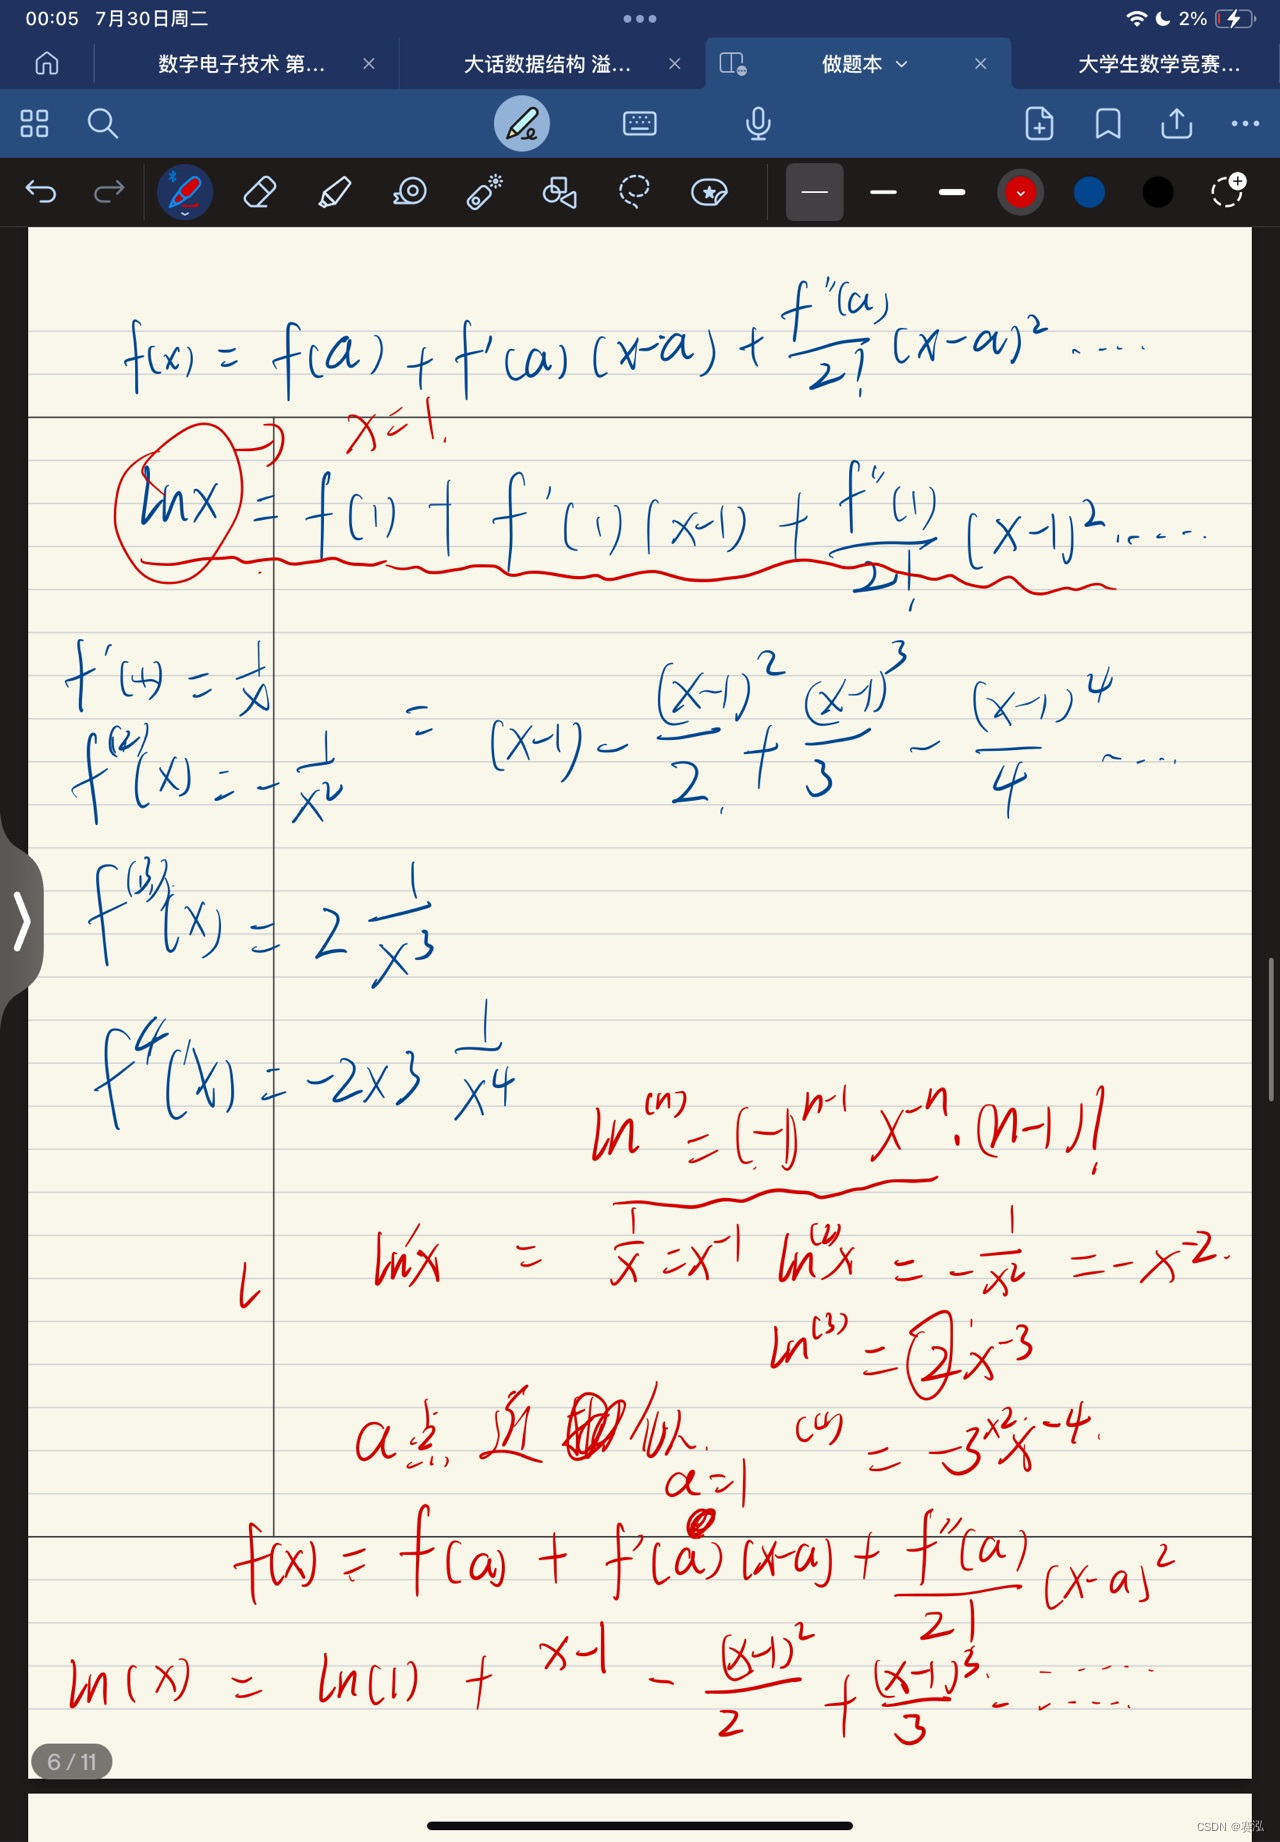 00:05 7月30日周二 2%
数字电子技术 第... 大话数据结构 溢... 做题本 大学生数学竞赛...
f(x) = f(a) + f'(a) (x-a) + f''(a)/2! (x-a)² ·····
x=1.
lnx = f(1) + f'(1) (x-1) + f''(1)/2! (x-1)² ······
f'(x) = 1/x
= (x-1) - (x-1)²/2 + (x-1)³/3 - (x-1)⁴/4 ·····
f⁽²⁾(x) = - 1/x²
f⁽³⁾(x) = 2 1/x³
f⁴(x) = -2×3 1/x⁴
ln⁽ⁿ⁾ = (-1)ⁿ⁻¹ x⁻ⁿ · (n-1)!
ln'x = 1/x = x⁻¹ ln⁽²⁾x = - 1/x² = -x⁻².
ln⁽³⁾ = 2x⁻³
a点 近似. ⁽⁴⁾ = -3×2x⁻⁴.
a=1
f(x) = f(a) + f'(a) (x-a) + f''(a)/2! (x-a)²
ln(x) = ln(1) + x-1 - (x-1)²/2 + (x-1)³/3 - ······
6 / 11
CSDN @赛泓